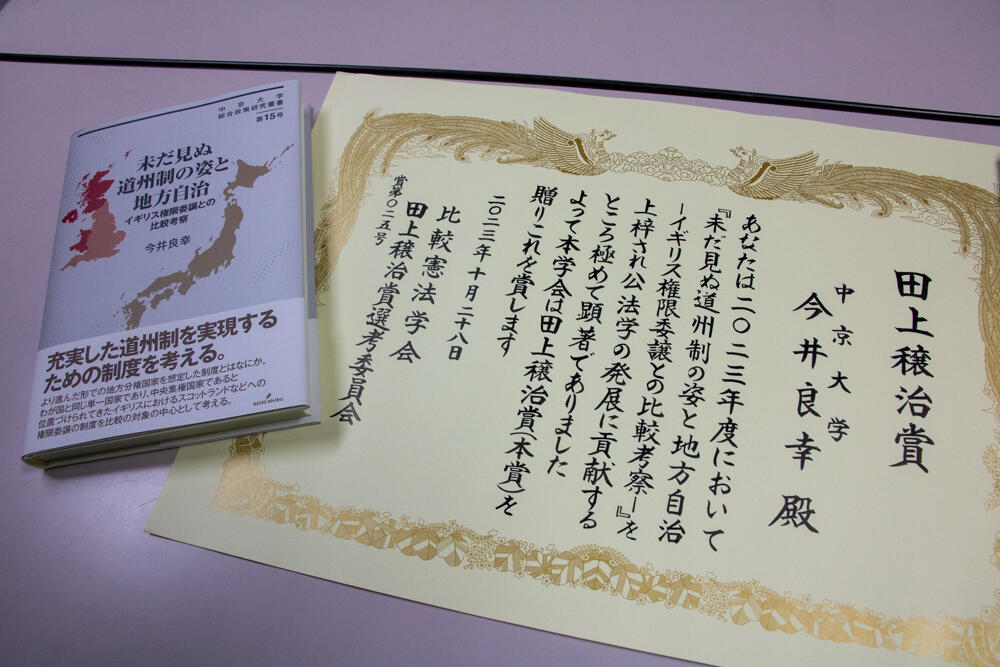 中京大学
総合政策研究叢書
第15号
未だ見ぬ
道州制の姿と
地方自治
イギリス権限委譲との
比較考察
今井良幸
充実した道州制を実現する
ための制度を考える。
より進んだ形での地方分権国家を想定した制度とはなにか。
わが国と同じ単一国家であり、中央集権国家であると
位置づけられてきたイギリスにおけるスコットランドなどへの
権限委譲の制度を比較の対象の中心として考える。
田上穣治賞
中京大学
今井良幸殿
あなたは二〇二三年度において
『未だ見ぬ道州制の姿と地方自治
―イギリス権限委譲との比較考察―』を
上梓され公法学の発展に貢献する
ところ極めて顕著でありました
よって本学会は田上穣治賞(本賞)を
贈りこれを賞します
二〇二三年十月二十八日
比較憲法学会
田上穣治賞選考委員会
賞第〇二五号